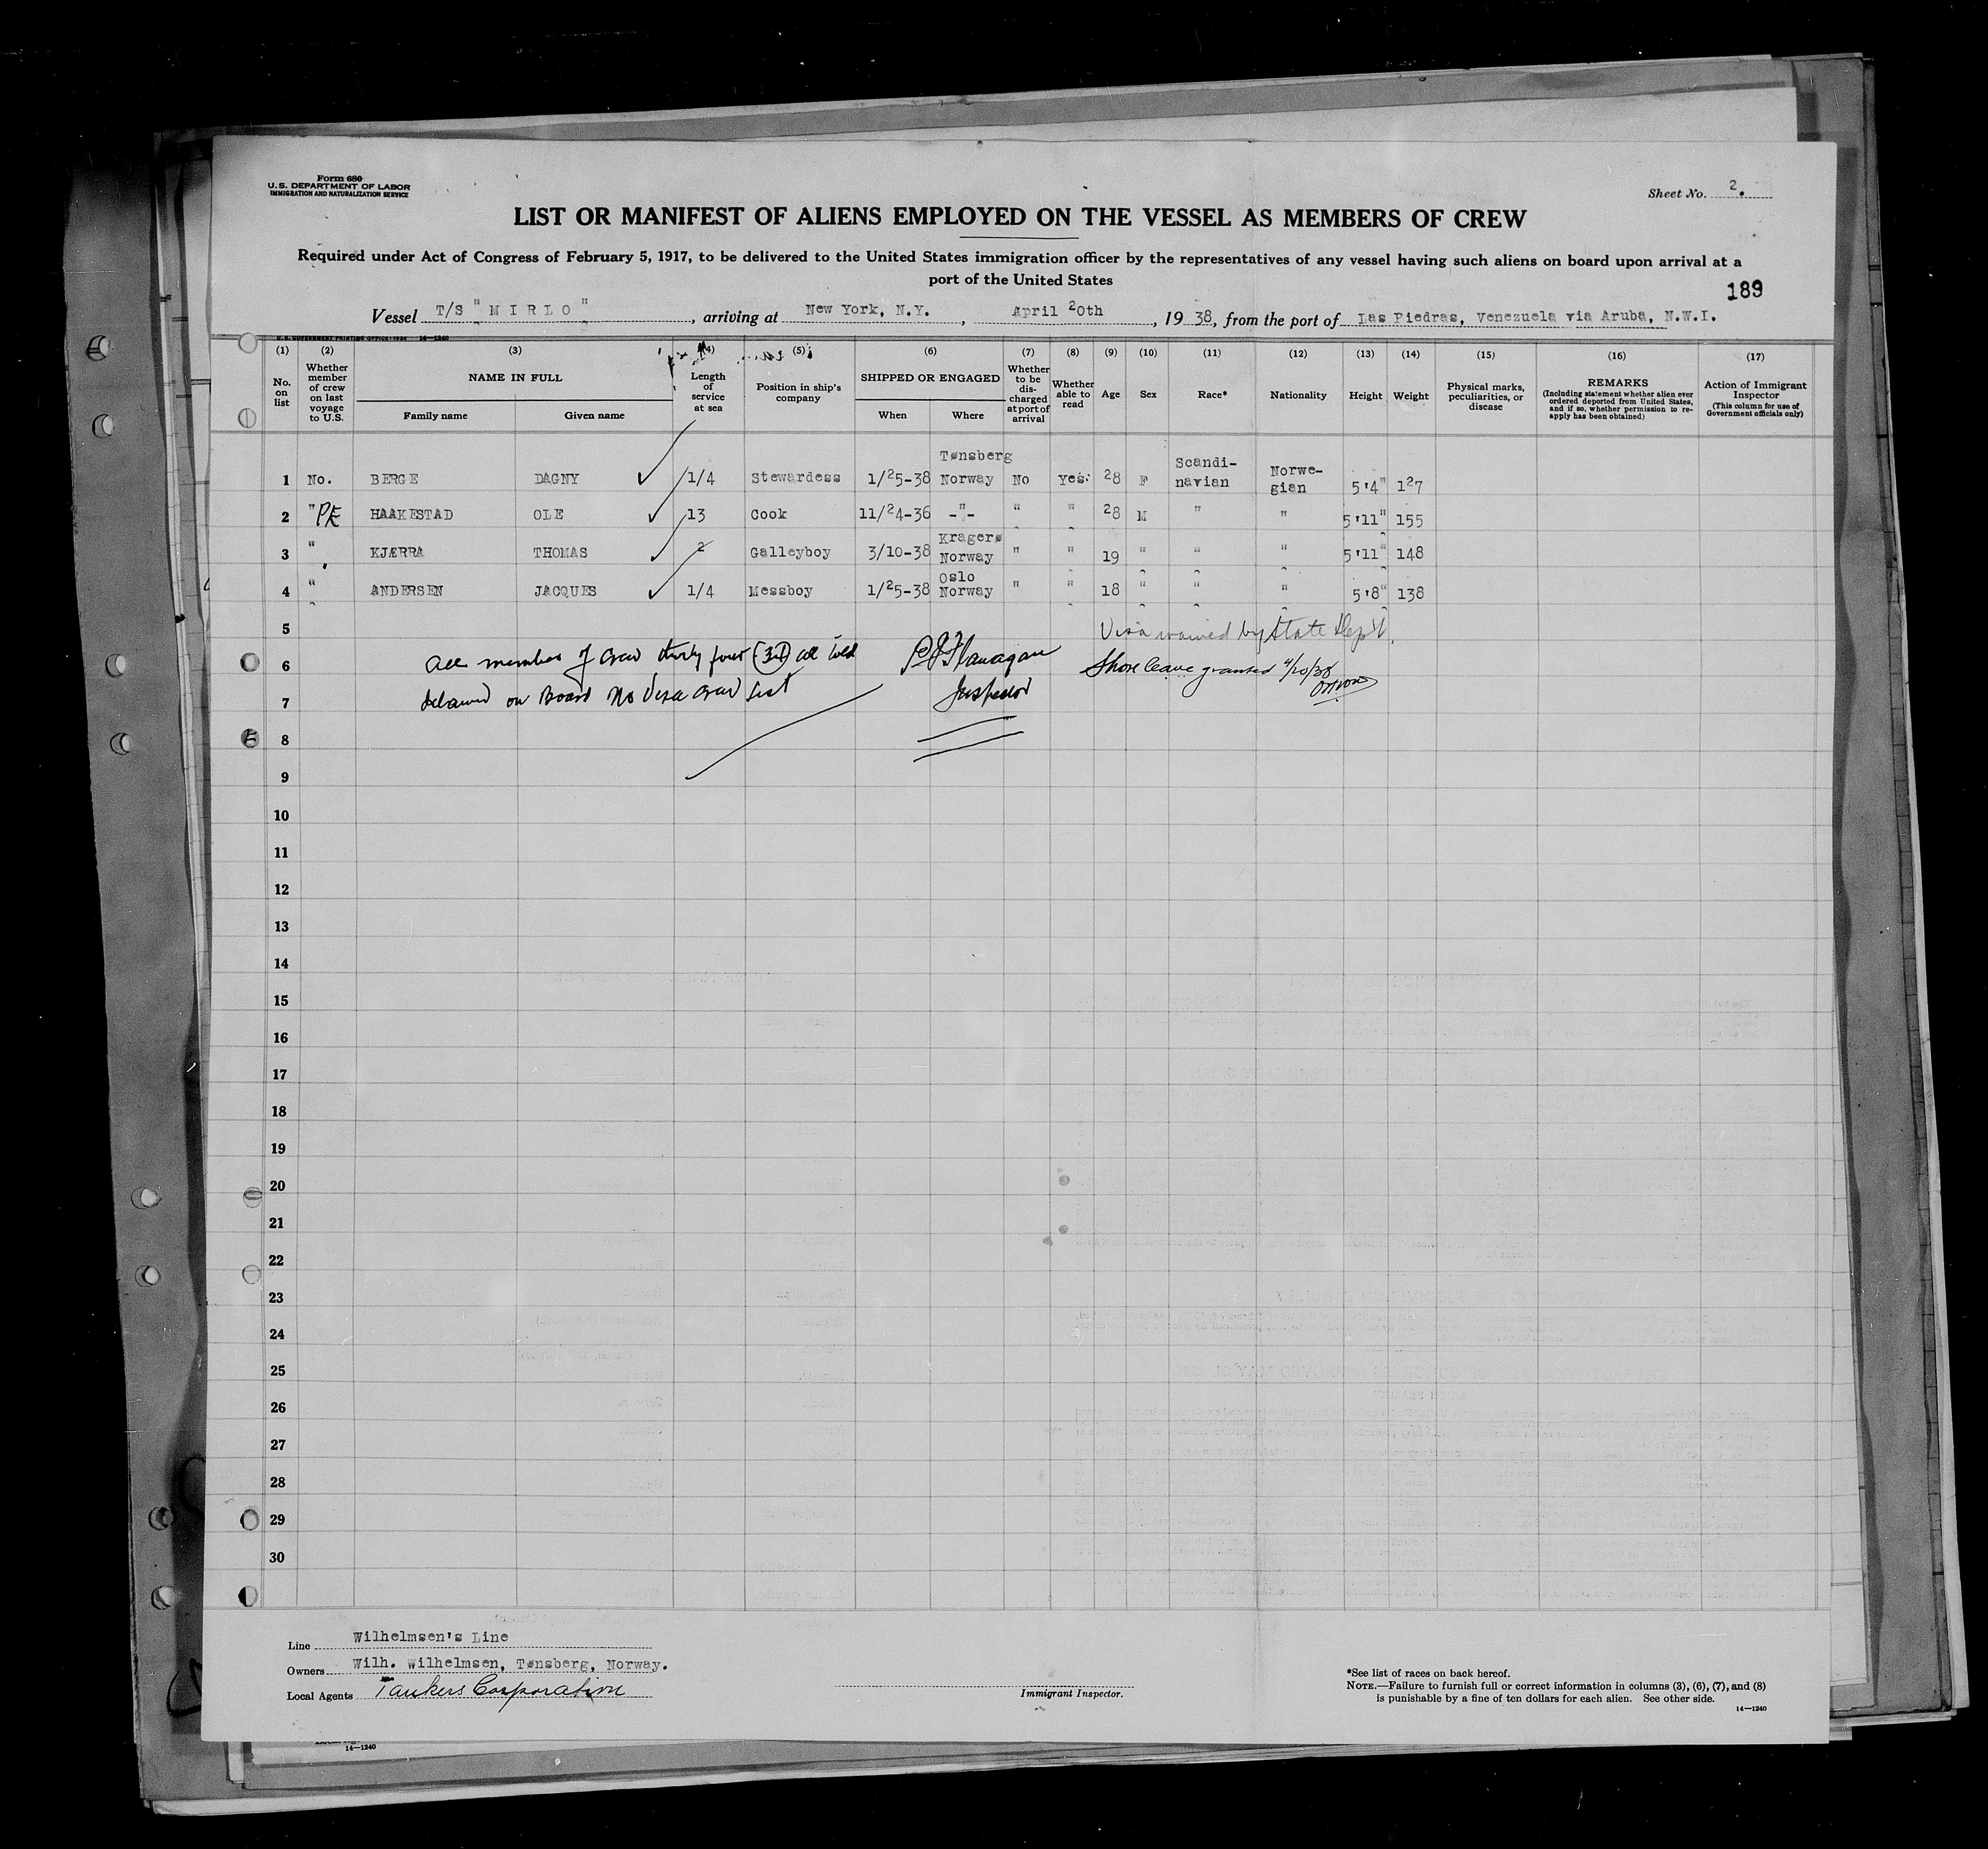 Form 680
U.S. DEPARTMENT OF LABOR
IMMIGRATION AND NATURALIZATION SERVICE
Sheet No. 2.
LIST OR MANIFEST OF ALIENS EMPLOYED ON THE VESSEL AS MEMBERS OF CREW
Required under Act of Congress of February 5, 1917, to be delivered to the United States immigration officer by the representatives of any vessel having such aliens on board upon arrival at a
port of the United States
189
Vessel T/S "MIRLO", arriving at New York, N.Y., April 20th, 1938, from the port of Las Piedras, Venezuela via Aruba, N.W.I.
U.S. GOVERNMENT PRINTING OFFICE: 1934 14—1240
(1) (2) (3) (4) (5) (6) (7) (8) (9) (10) (11) (12) (13) (14) (15) (16) (17)
No. on list
Whether member of crew on last voyage to U.S.
NAME IN FULL
Family name Given name
Length of service at sea
Position in ship's company
SHIPPED OR ENGAGED
When Where
Whether to be discharged at port of arrival
Whether able to read
Age
Sex
Race*
Nationality
Height
Weight
Physical marks, peculiarities, or disease
REMARKS
(Including statement whether alien ever ordered deported from United States, and if so, whether permission to re-apply has been obtained)
Action of Immigrant Inspector
(This column for use of Government officials only)
1 No. BERGE DAGNY 1/4 Stewardess 1/25-38 Tønsberg Norway No Yes. 28 F Scandi-navian Norwe-gian 5'4" 127
2 " PE HAAKESTAD OLE 13 Cook 11/24-36 -"- " " 28 M " " 5'11" 155
3 " KJÆRRA THOMAS 2 Galleyboy 3/10-38 Kragerø Norway " " 19 " " " 5'11" 148
4 " ANDERSEN JACQUES 1/4 Messboy 1/25-38 Oslo Norway " " 18 " " " 5'8" 138
5 Visa waived by State Dep't.
6 All members of crew thirty four (34) all told P J Flanagan Shore leave granted 4/20/38
7 detained on Board No Visa Crew List Inspector
8
9
10
11
12
13
14
15
16
17
18
19
20
21
22
23
24
25
26
27
28
29
30
Line Wilhelmsen's Line
Owners Wilh. Wilhelmsen, Tønsberg, Norway.
Local Agents Tankers Corporation
Immigrant Inspector.
*See list of races on back hereof.
NOTE.—Failure to furnish full or correct information in columns (3), (6), (7), and (8)
is punishable by a fine of ten dollars for each alien. See other side.
14—1240
14—1240